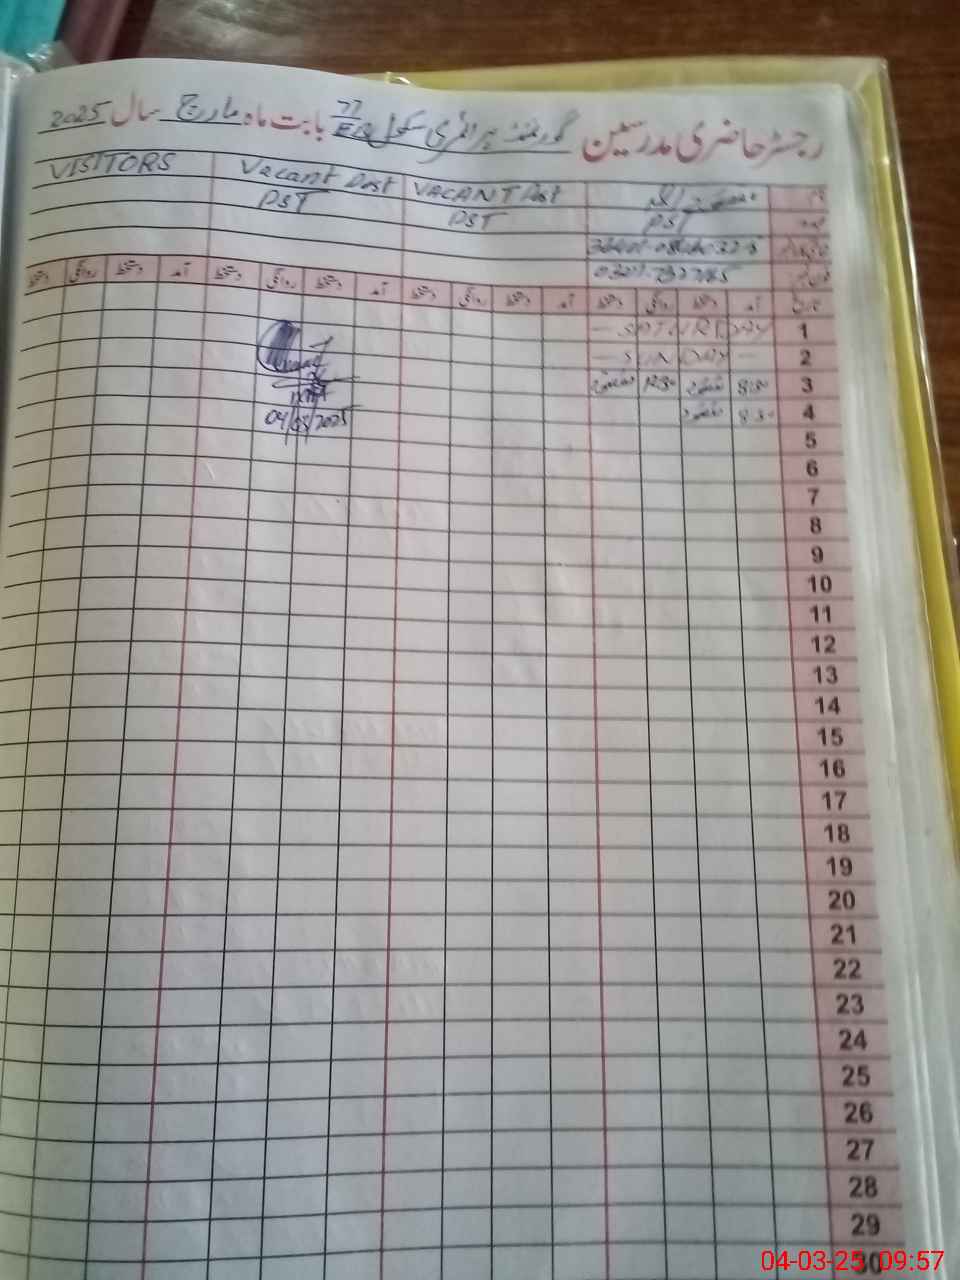 رجسٹر حاضری مدرسین گورنمنٹ پرائمری سکول 77/EB بابت ماه مارچ سال 2025
نام
VACANT Post
Vacant Post
VISITORS
عہدہ PST
PST
PST
تاریخ آمد دستخط روانگی دستخط آمد دستخط روانگی دستخط آمد دستخط روانگی دستخط آمد دستخط روانگی دستخط
1 SATURDAY
2 SUNDAY
3 8:30 12:30
4 8:30
04/03/2025
5
6
7
8
9
10
11
12
13
14
15
16
17
18
19
20
21
22
23
24
25
26
27
28
29
30
04-03-25 09:57